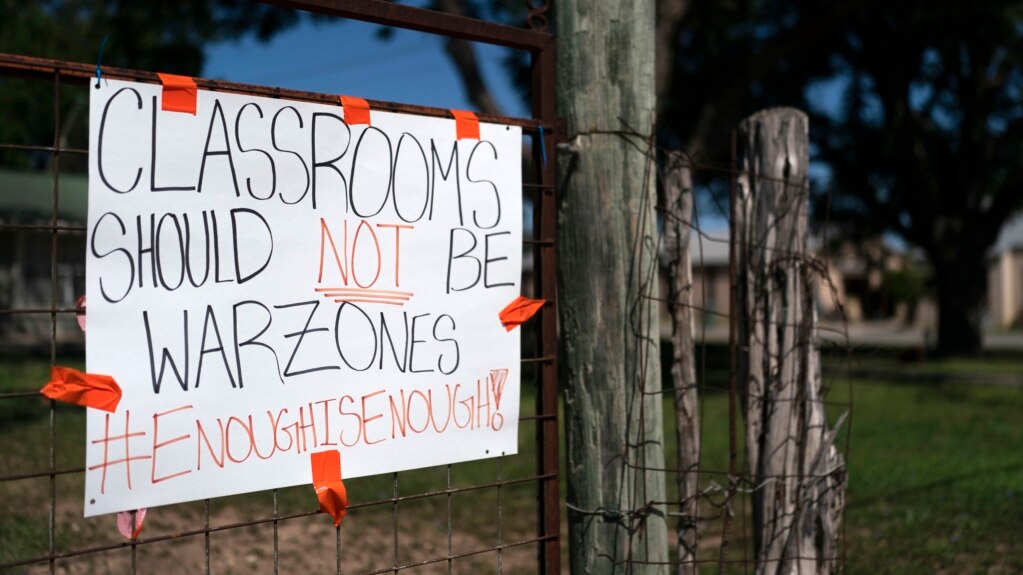 CLASSROOMS
SHOULD NOT BE
WARZONES
#ENOUGHISENOUGH!